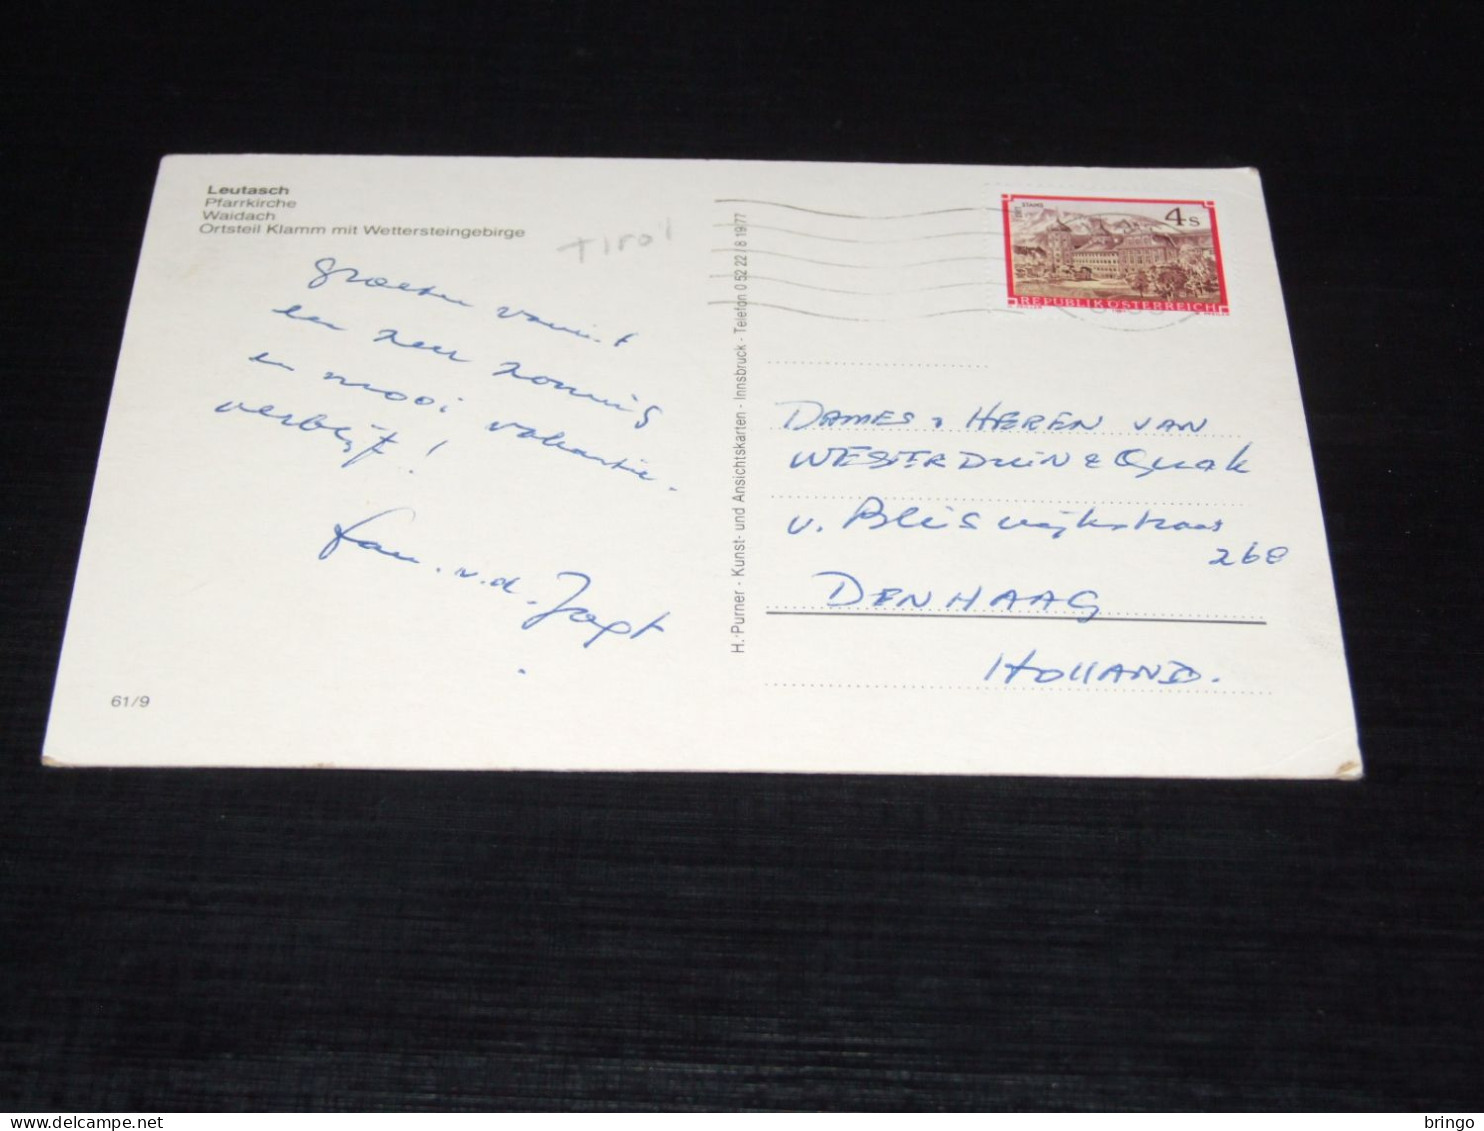 Leutasch
Pfarrkirche
Waidach
Ortsteil Klamm mit Wettersteingebirge
Tirol
Groeten vanuit
een zeer zonnig
en mooi vakantie.
verblijf!
Fam. v.d. Jagt
61/9
H. Purner - Kunst- und Ansichtskarten - Innsbruck - Telefon 0 52 22 / 8 19 77
STAMS
4 S
REPUBLIK ÖSTERREICH
DAMES & HEREN VAN
WESTERDUIN & Quak
v. Bleiswijkstraat
268
DEN HAAG
HOLLAND.
bringo